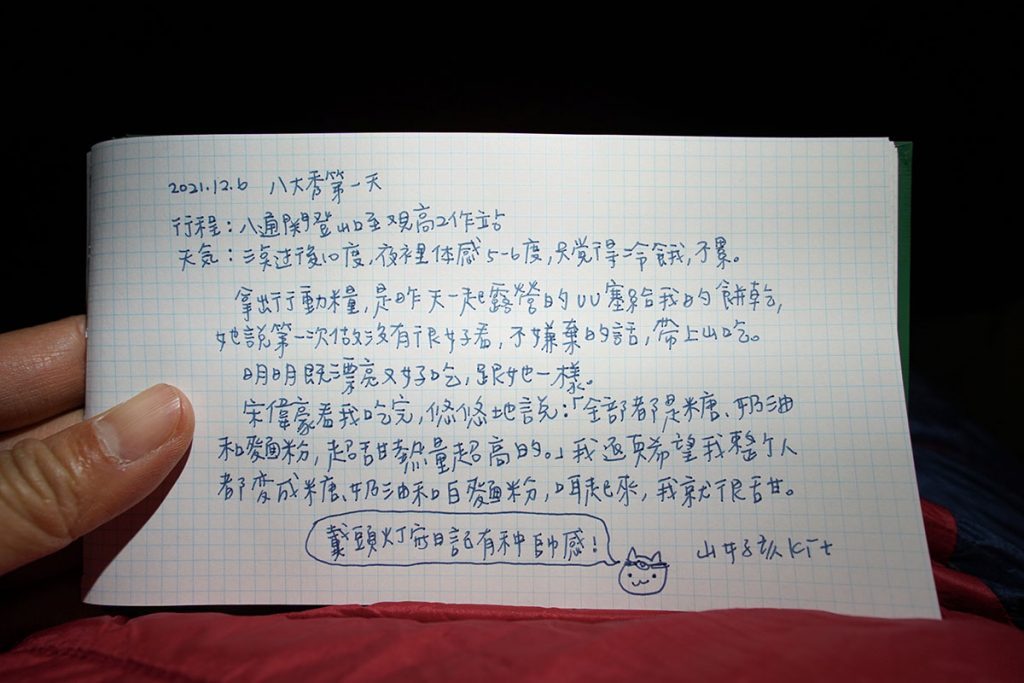 2021.12.6 八大秀第一天
行程：八通關登山口至观高工作站
天気：凌晨後10度,夜裡体感5-6度,只覚得冷餓,不累。
拿出行動糧,是昨天一起露營的UU塞給我的餅乾,
她說第一次做沒有很好看,不嫌棄的話,帶上山吃。
明明既漂亮又好吃,跟她一樣。
宋偉豪看我吃完,悠悠地說:「全部都是糖、奶油
和麵粉,超甜熱量超高的。」我還真希望我整个人
都变成糖、奶油和白麵粉,嚼起來,我就很甜。
戴頭灯寫日記有种帥感!
山女孩Kit